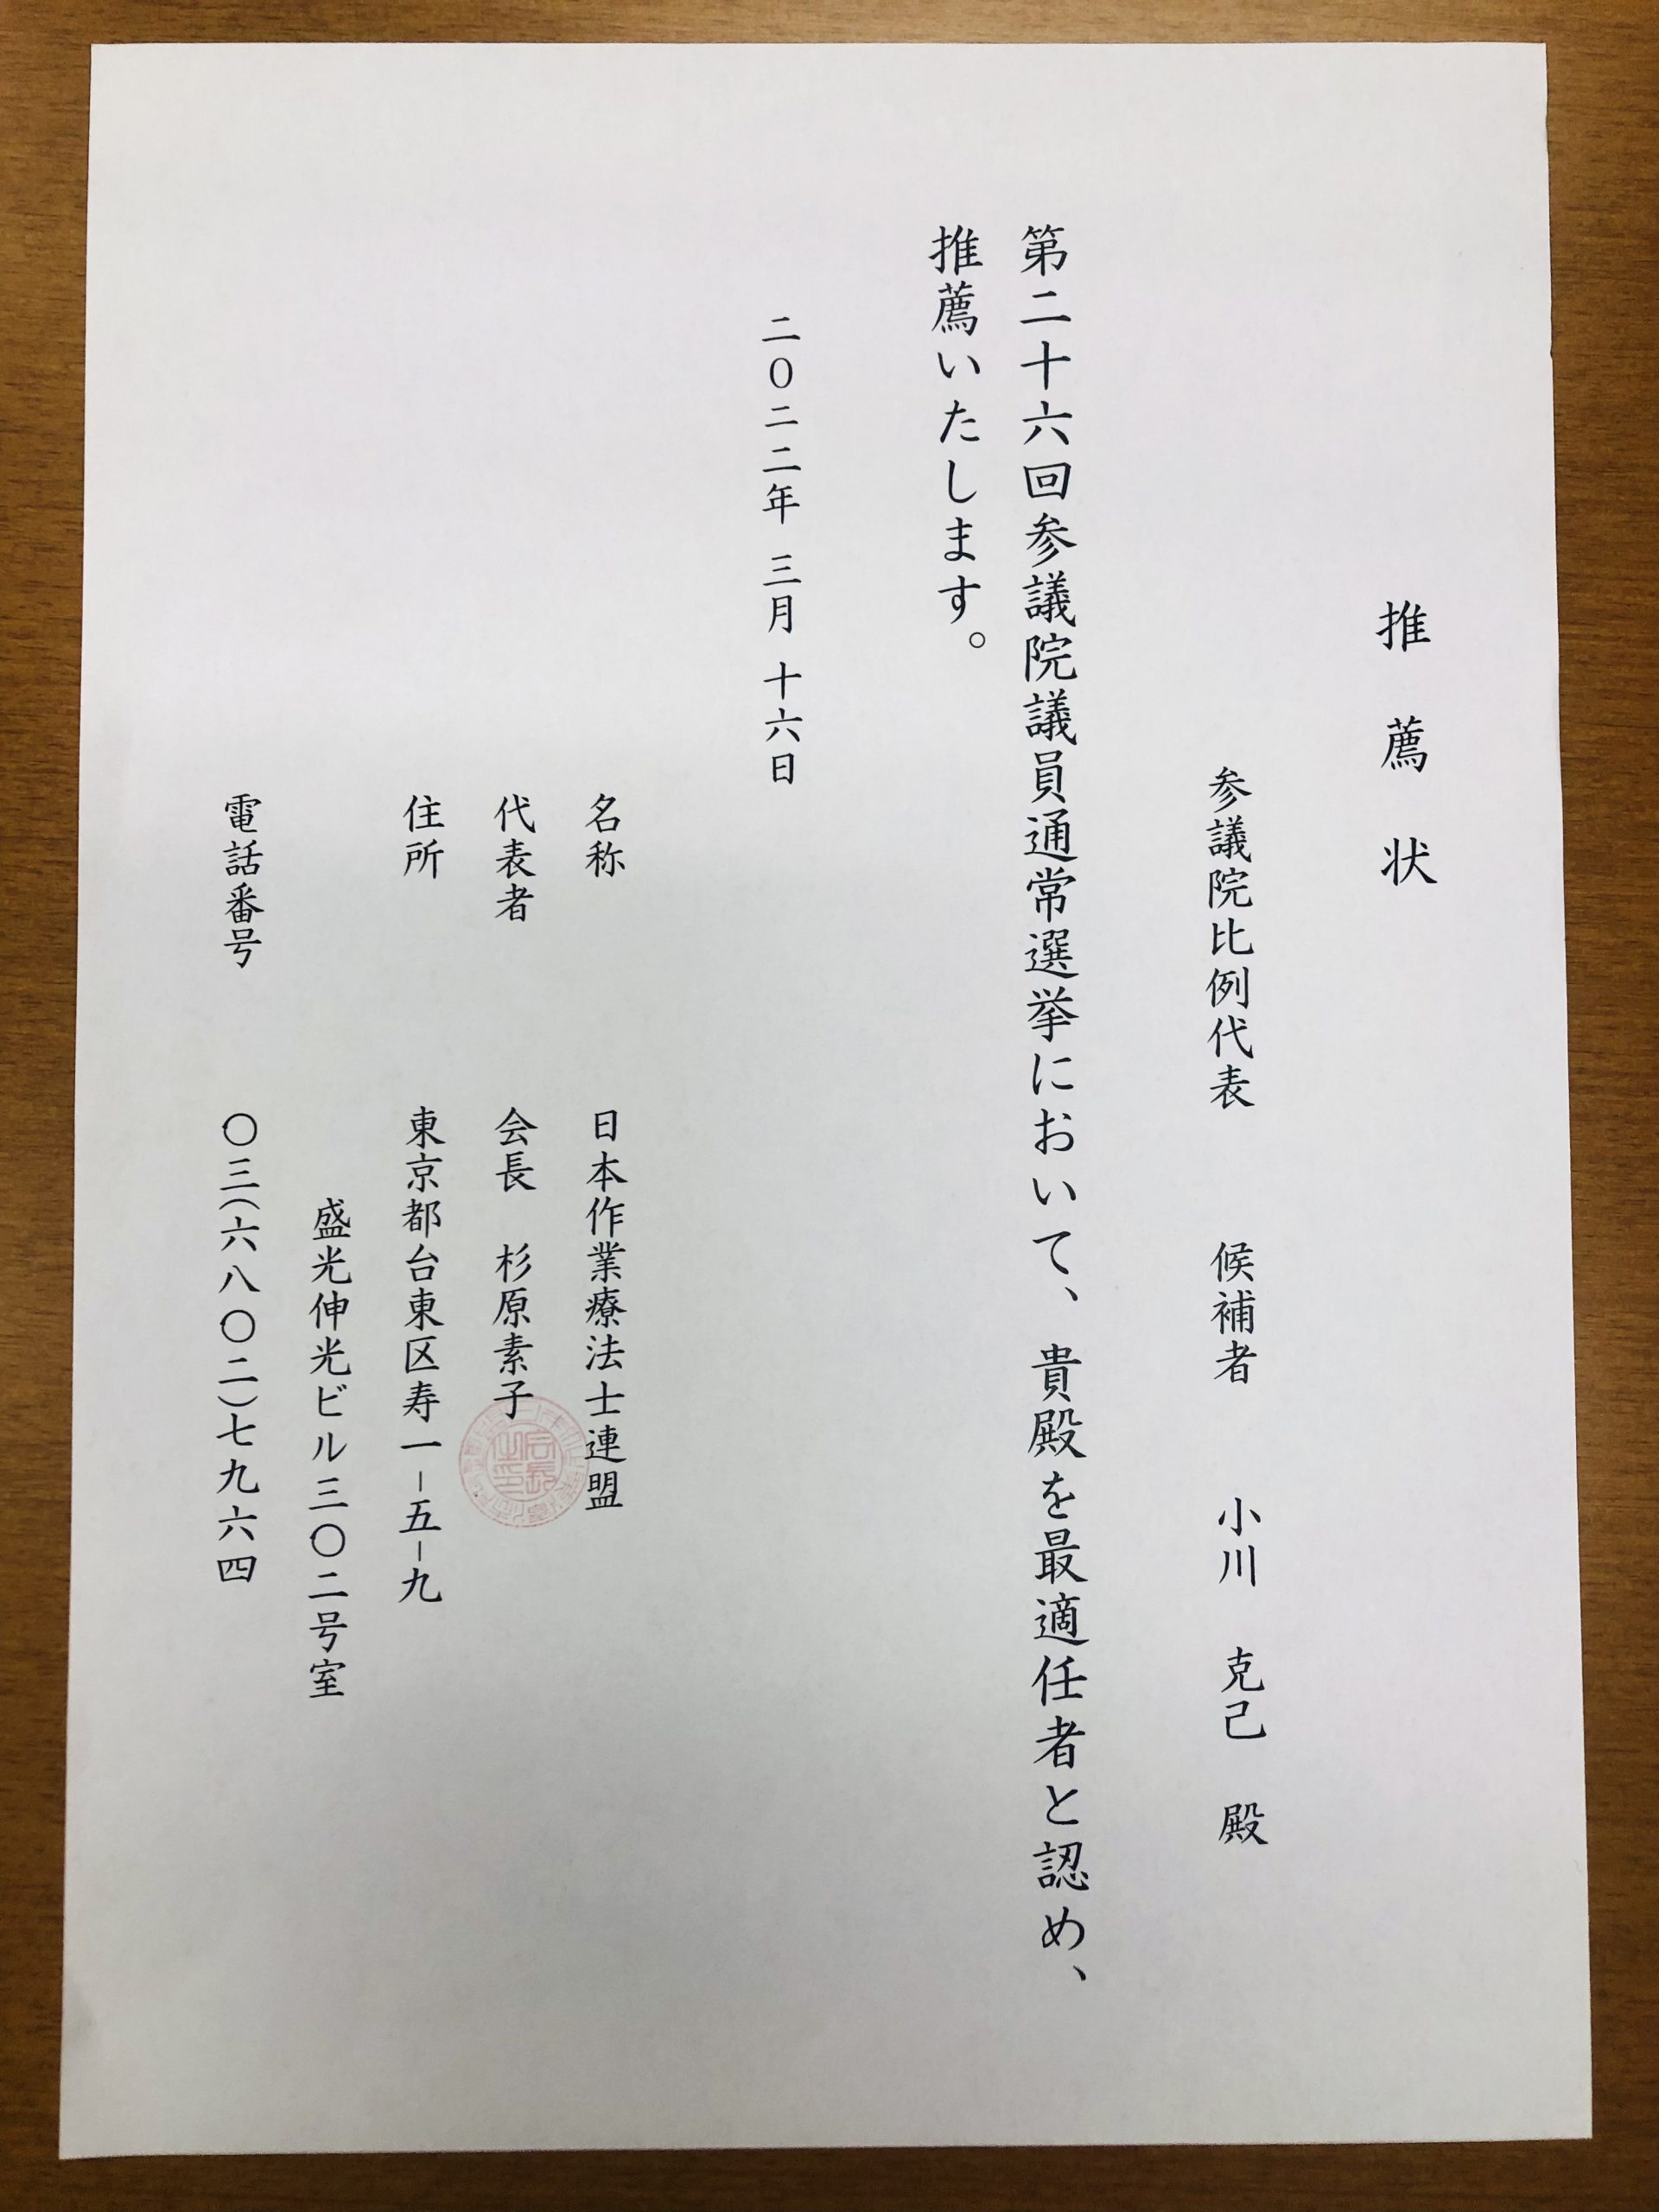 推薦状
参議院比例代表　候補者　小川　克己　殿
第二十六回参議院議員通常選挙において、貴殿を最適任者と認め、
推薦いたします。
二〇二二年 三月 十六日
名称　日本作業療法士連盟
代表者　会長　杉原素子
住所　東京都台東区寿一-五-九
盛光伸光ビル三〇二号室
電話番号　〇三(六八〇二)七九六四